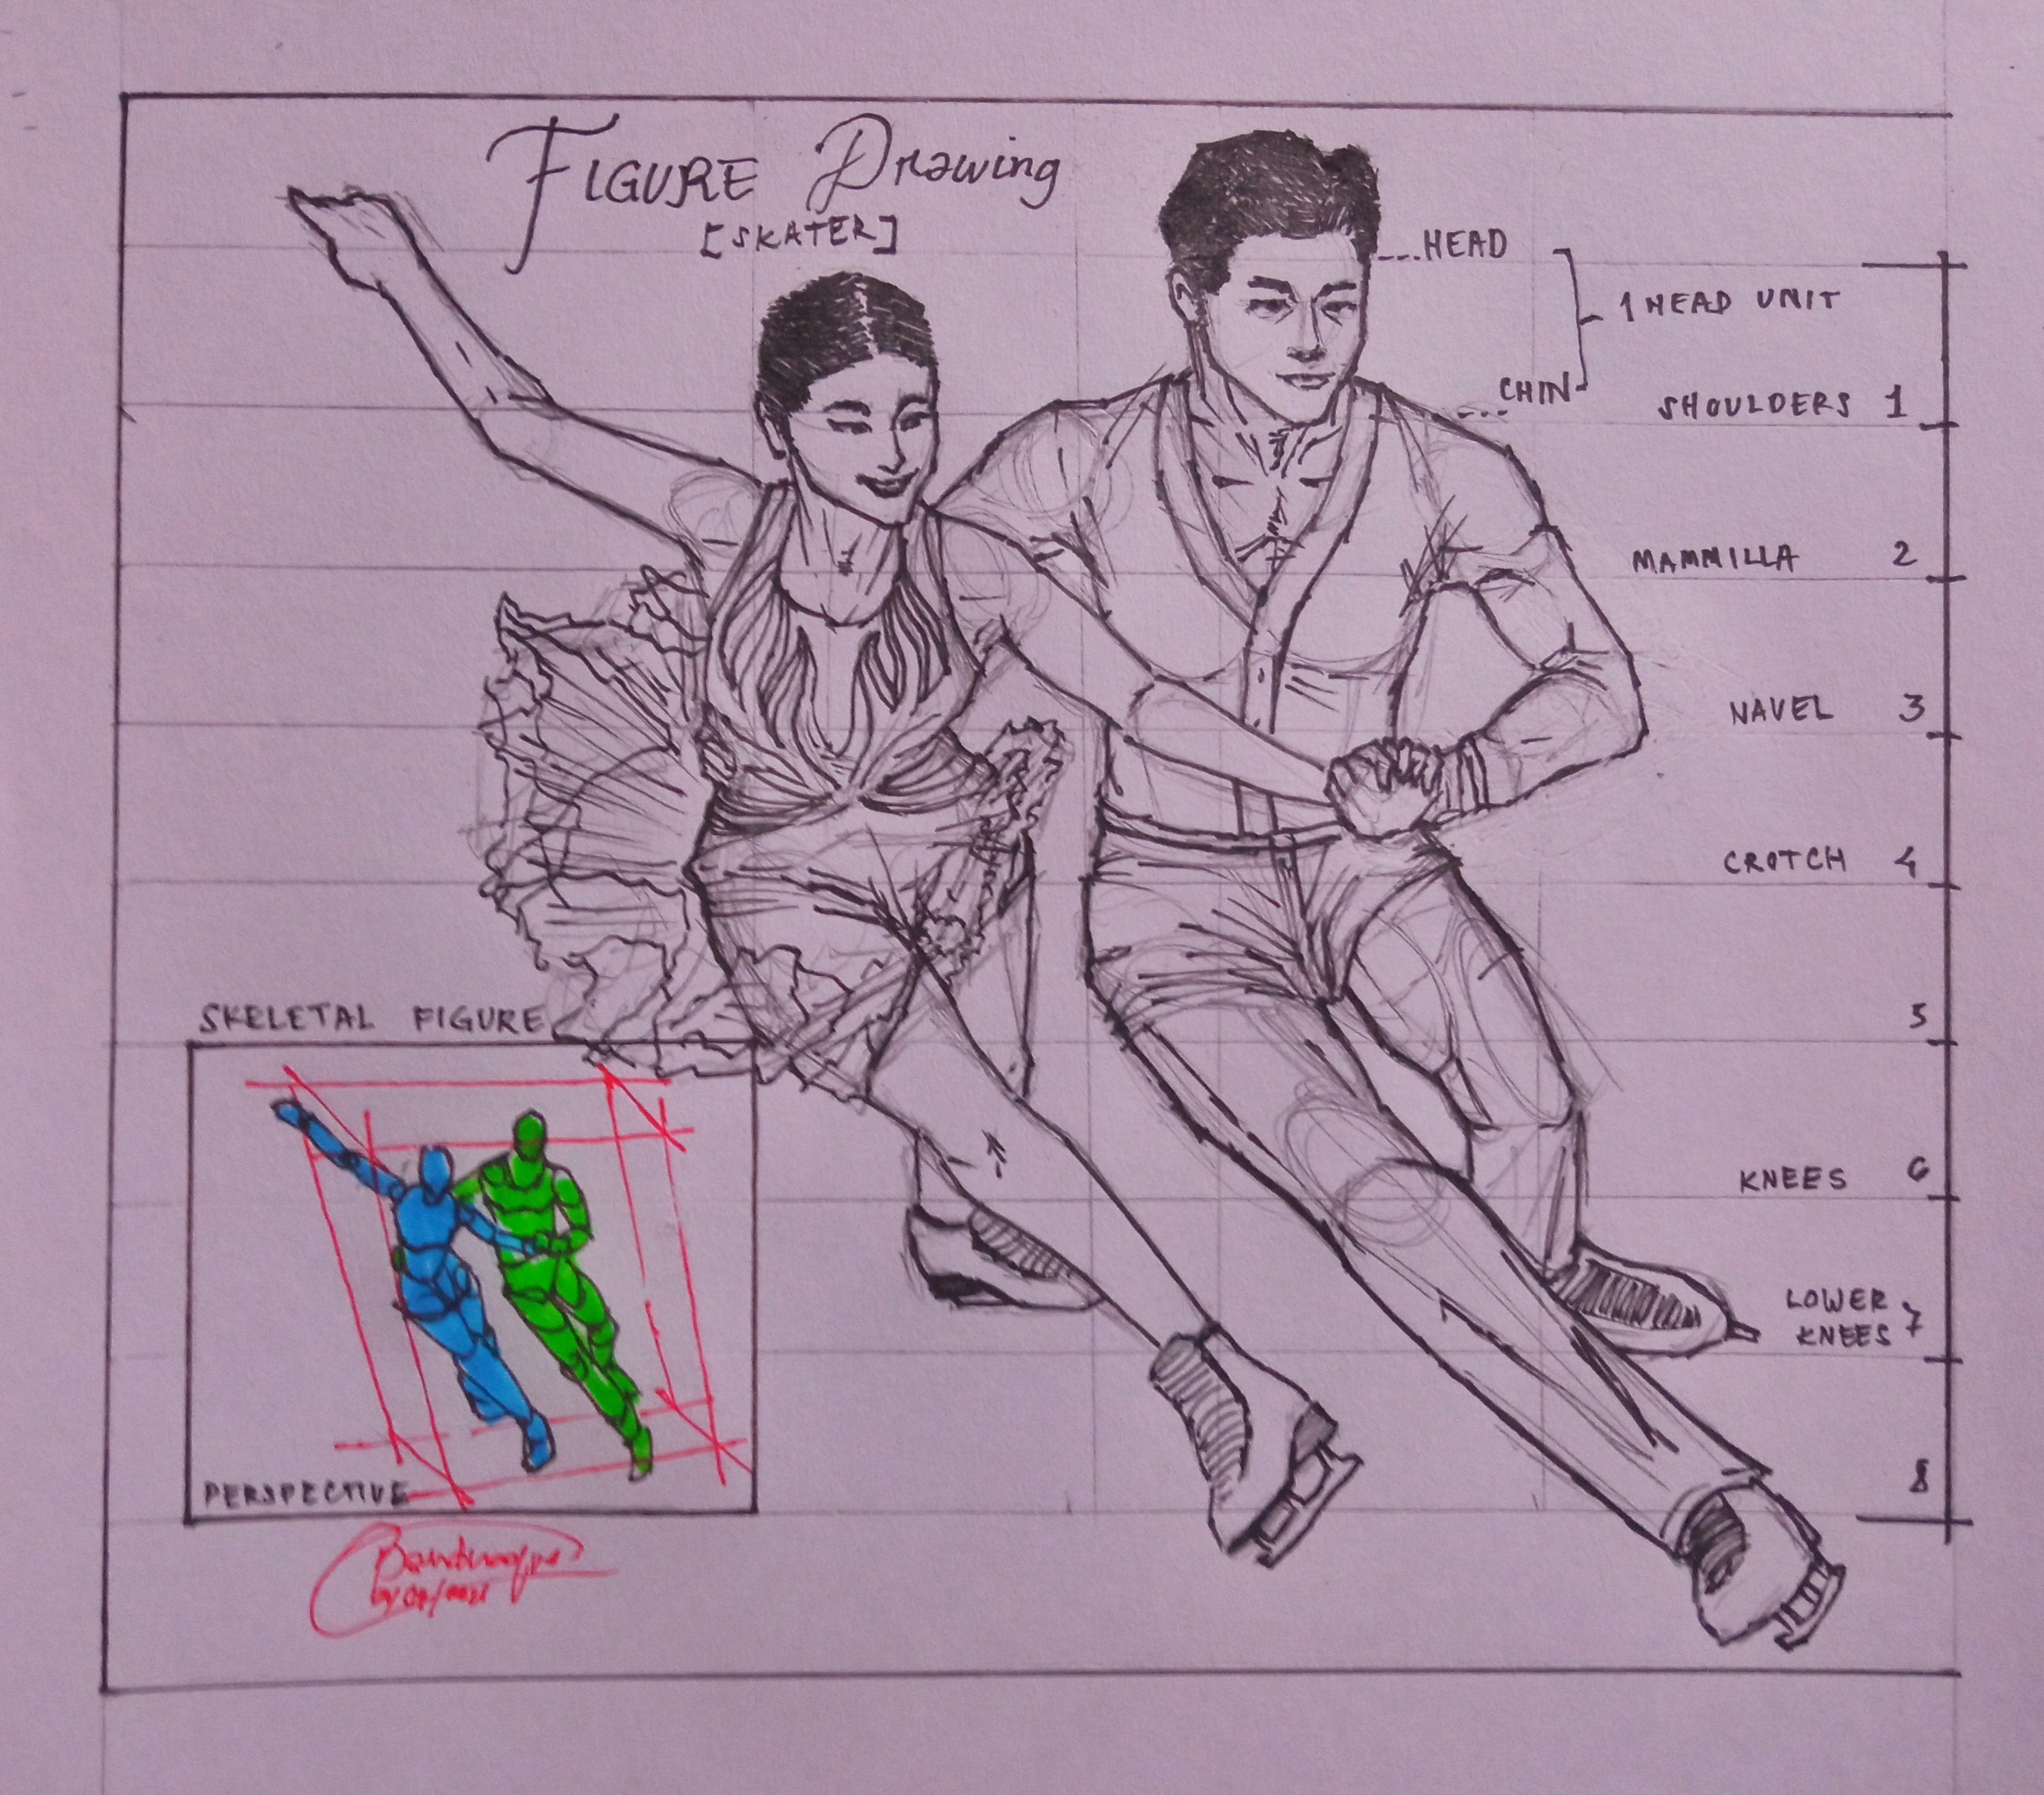 FIGURE Drawing
[SKATER]
HEAD
1 HEAD UNIT
CHIN
SHOULDERS 1
MAMMILLA 2
NAVEL 3
CROTCH 4
5
KNEES 6
LOWER
KNEES 7
8
SKELETAL FIGURE
PERSPECTIVE